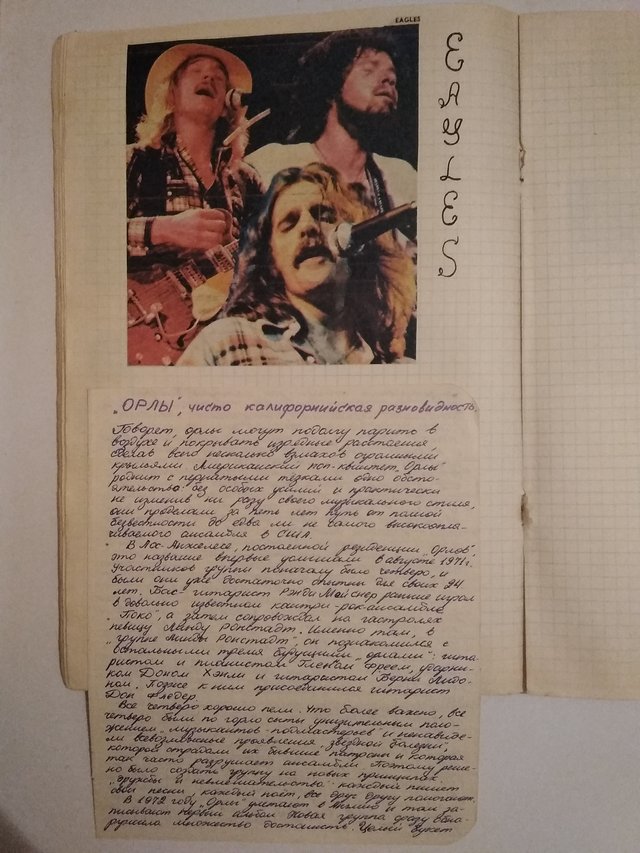 EAGLES
EAGLES
„ОРЛЫ", чисто калифорнийская разновидность.
Говорят, орлы могут подолгу парить в
воздухе и покрывать изрядные расстояния
сделав всего несколько взмахов огромными
крыльями. Американский поп-квинтет „Орлы"
роднит с пернатыми тёзками одно обсто-
ятельство: без особых усилий и практически
не изменив ни разу своего музыкального стиля,
они проделали за пять лет путь от полной
безвестности до едва ли не самого высокоопла-
чиваемого ансамбля в США.
В Лос-Анжелесе, постоянной резиденции „Орлов",
это название впервые услышали в августе 1971 г.
Участников группы поначалу было четверо, и
были они уже достаточно опытны для своих 24
лет. Бас-гитарист Рэнди Мейснер раньше играл
в довольно известном кантри-рок-ансамбле
„Поко", а затем сопровождал на гастролях
певицу Линду Ронстадт. Именно там, в
„группе Линды Ронстадт", он познакомился с
остальными тремя будущими „орлами": гита-
ристом и пианистом Гленом Фреем, ударни-
ком Доном Хэнли и гитаристом Берни Лидо-
ном. Позже к ним присоединился гитарист
Дон Фелдер.
Все четверо хорошо пели. Что более важно, все
четверо были по горло сыты унизительным поло-
жением „музыкантов-подмастерьев" и ненавиде-
ли всевозможные проявления „звёздной болезни",
которой страдали их бывшие патроны и которая
так часто разрушает ансамбли. Поэтому реше-
но было создать группу на новых принципах
„дружбы и невмешательства": каждый пишет
свои песни, каждый поёт, все друг другу помогают.
В 1972 году „Орлы" улетают в Англию и там за-
писывают первый альбом. Новая группа сразу обна-
ружила множество достоинств. Целый букет